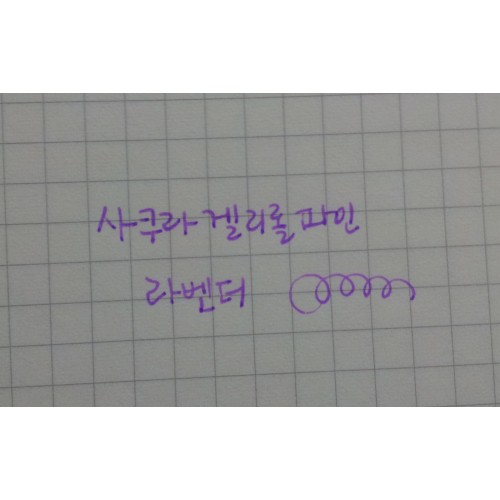 사쿠라겔리롤파인
라벤더